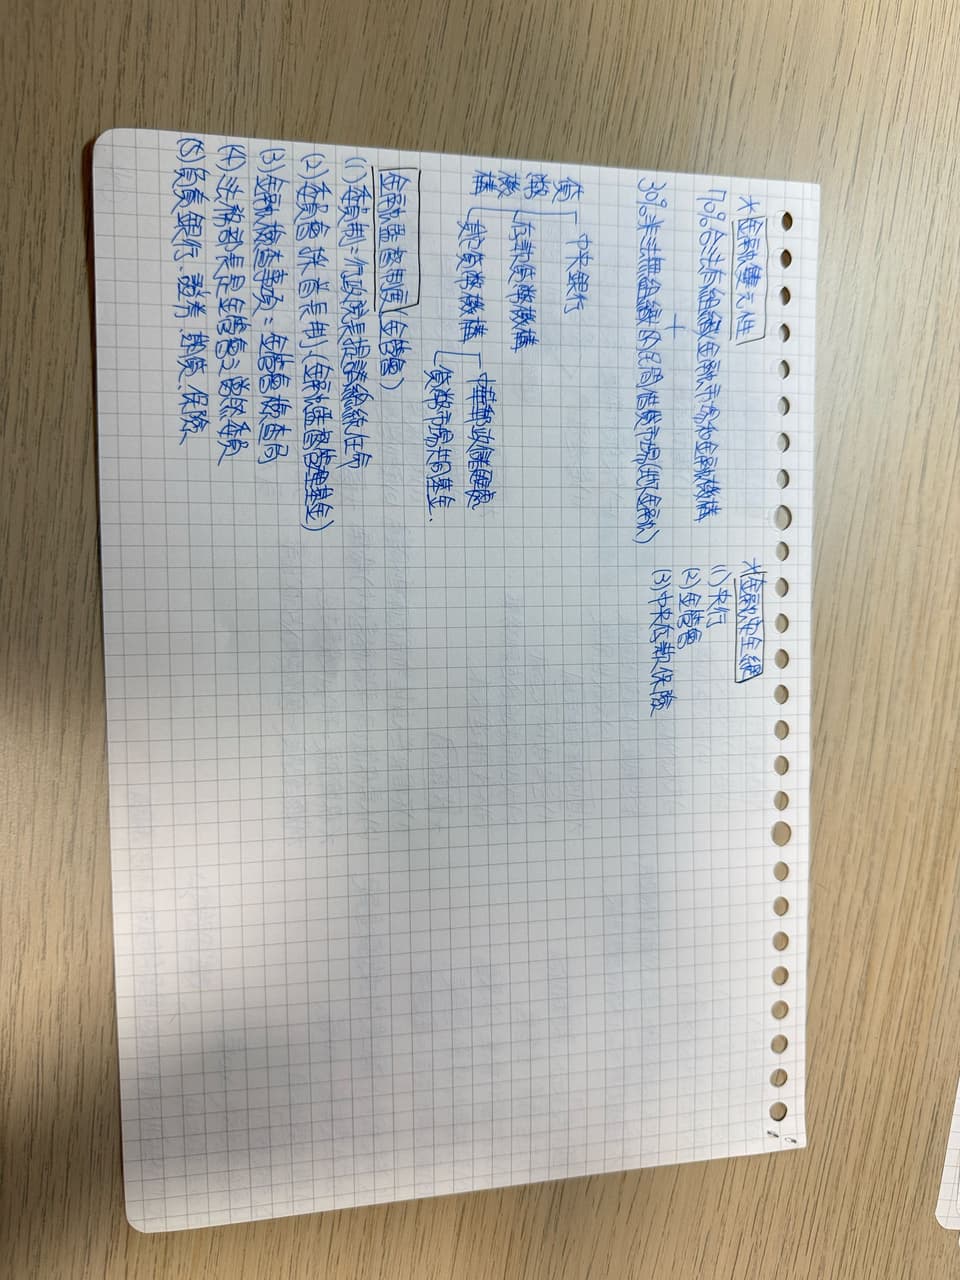 *金融雙元性
70%合法有組織金融市場和金融機構
+
30%非法無組織的民間借貸市場(地下金融)
貨幣機構
中央銀行
存款貨幣機構
準貨幣機構
中華郵政儲匯處
貨幣市場共同基金.
金融監督制度(金管會)
(1) 委員制:行政院長提請總統任命
(2) 委員會 + 首長制(金融監督管理基金)
(3) 金融檢查事項:金管會檢查局
(4) 法務部長是金管會之當然委員
(5) 負責銀行.證券.期貨.保險.
*金融安全網
(1) 央行
(2) 金管會
(3) 中央存款保險